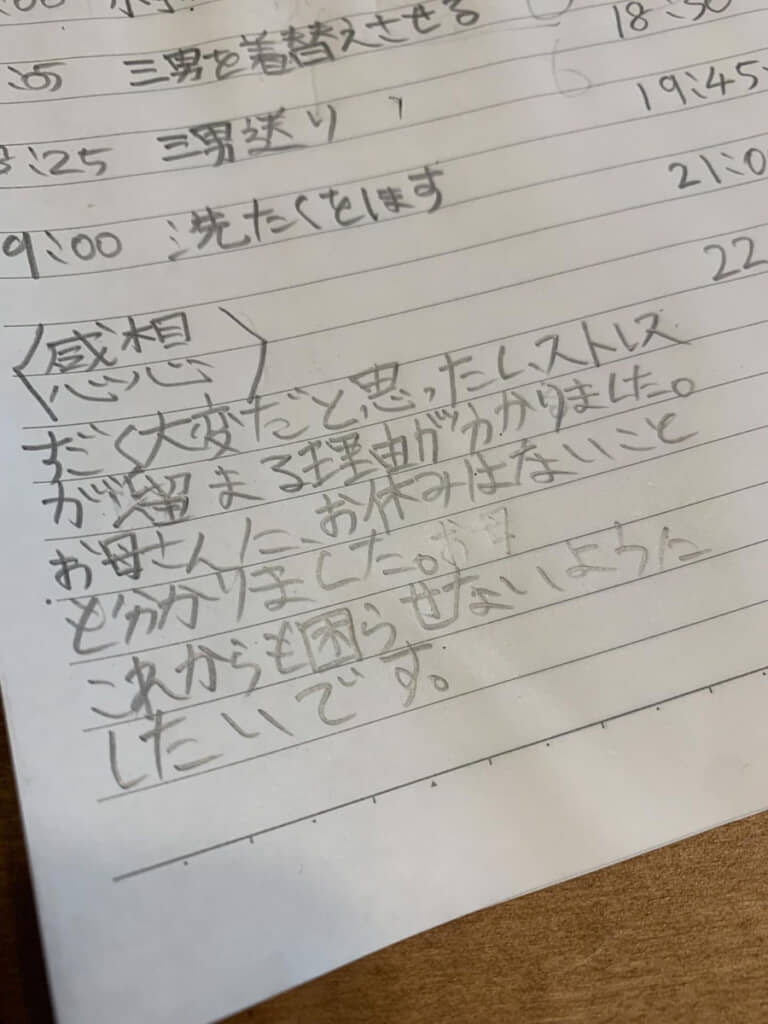 :05 三男を着替えさせる 18:30
8:25 三男送り 19:45
9:00 洗たくをします 21:0
22
〈感想〉
すごく大変だと思ったし、ストレス
が溜まる理由がわかりました。
お母さんに、お休みはないこと
がわかりました。
これからも困らせないように
したいです。